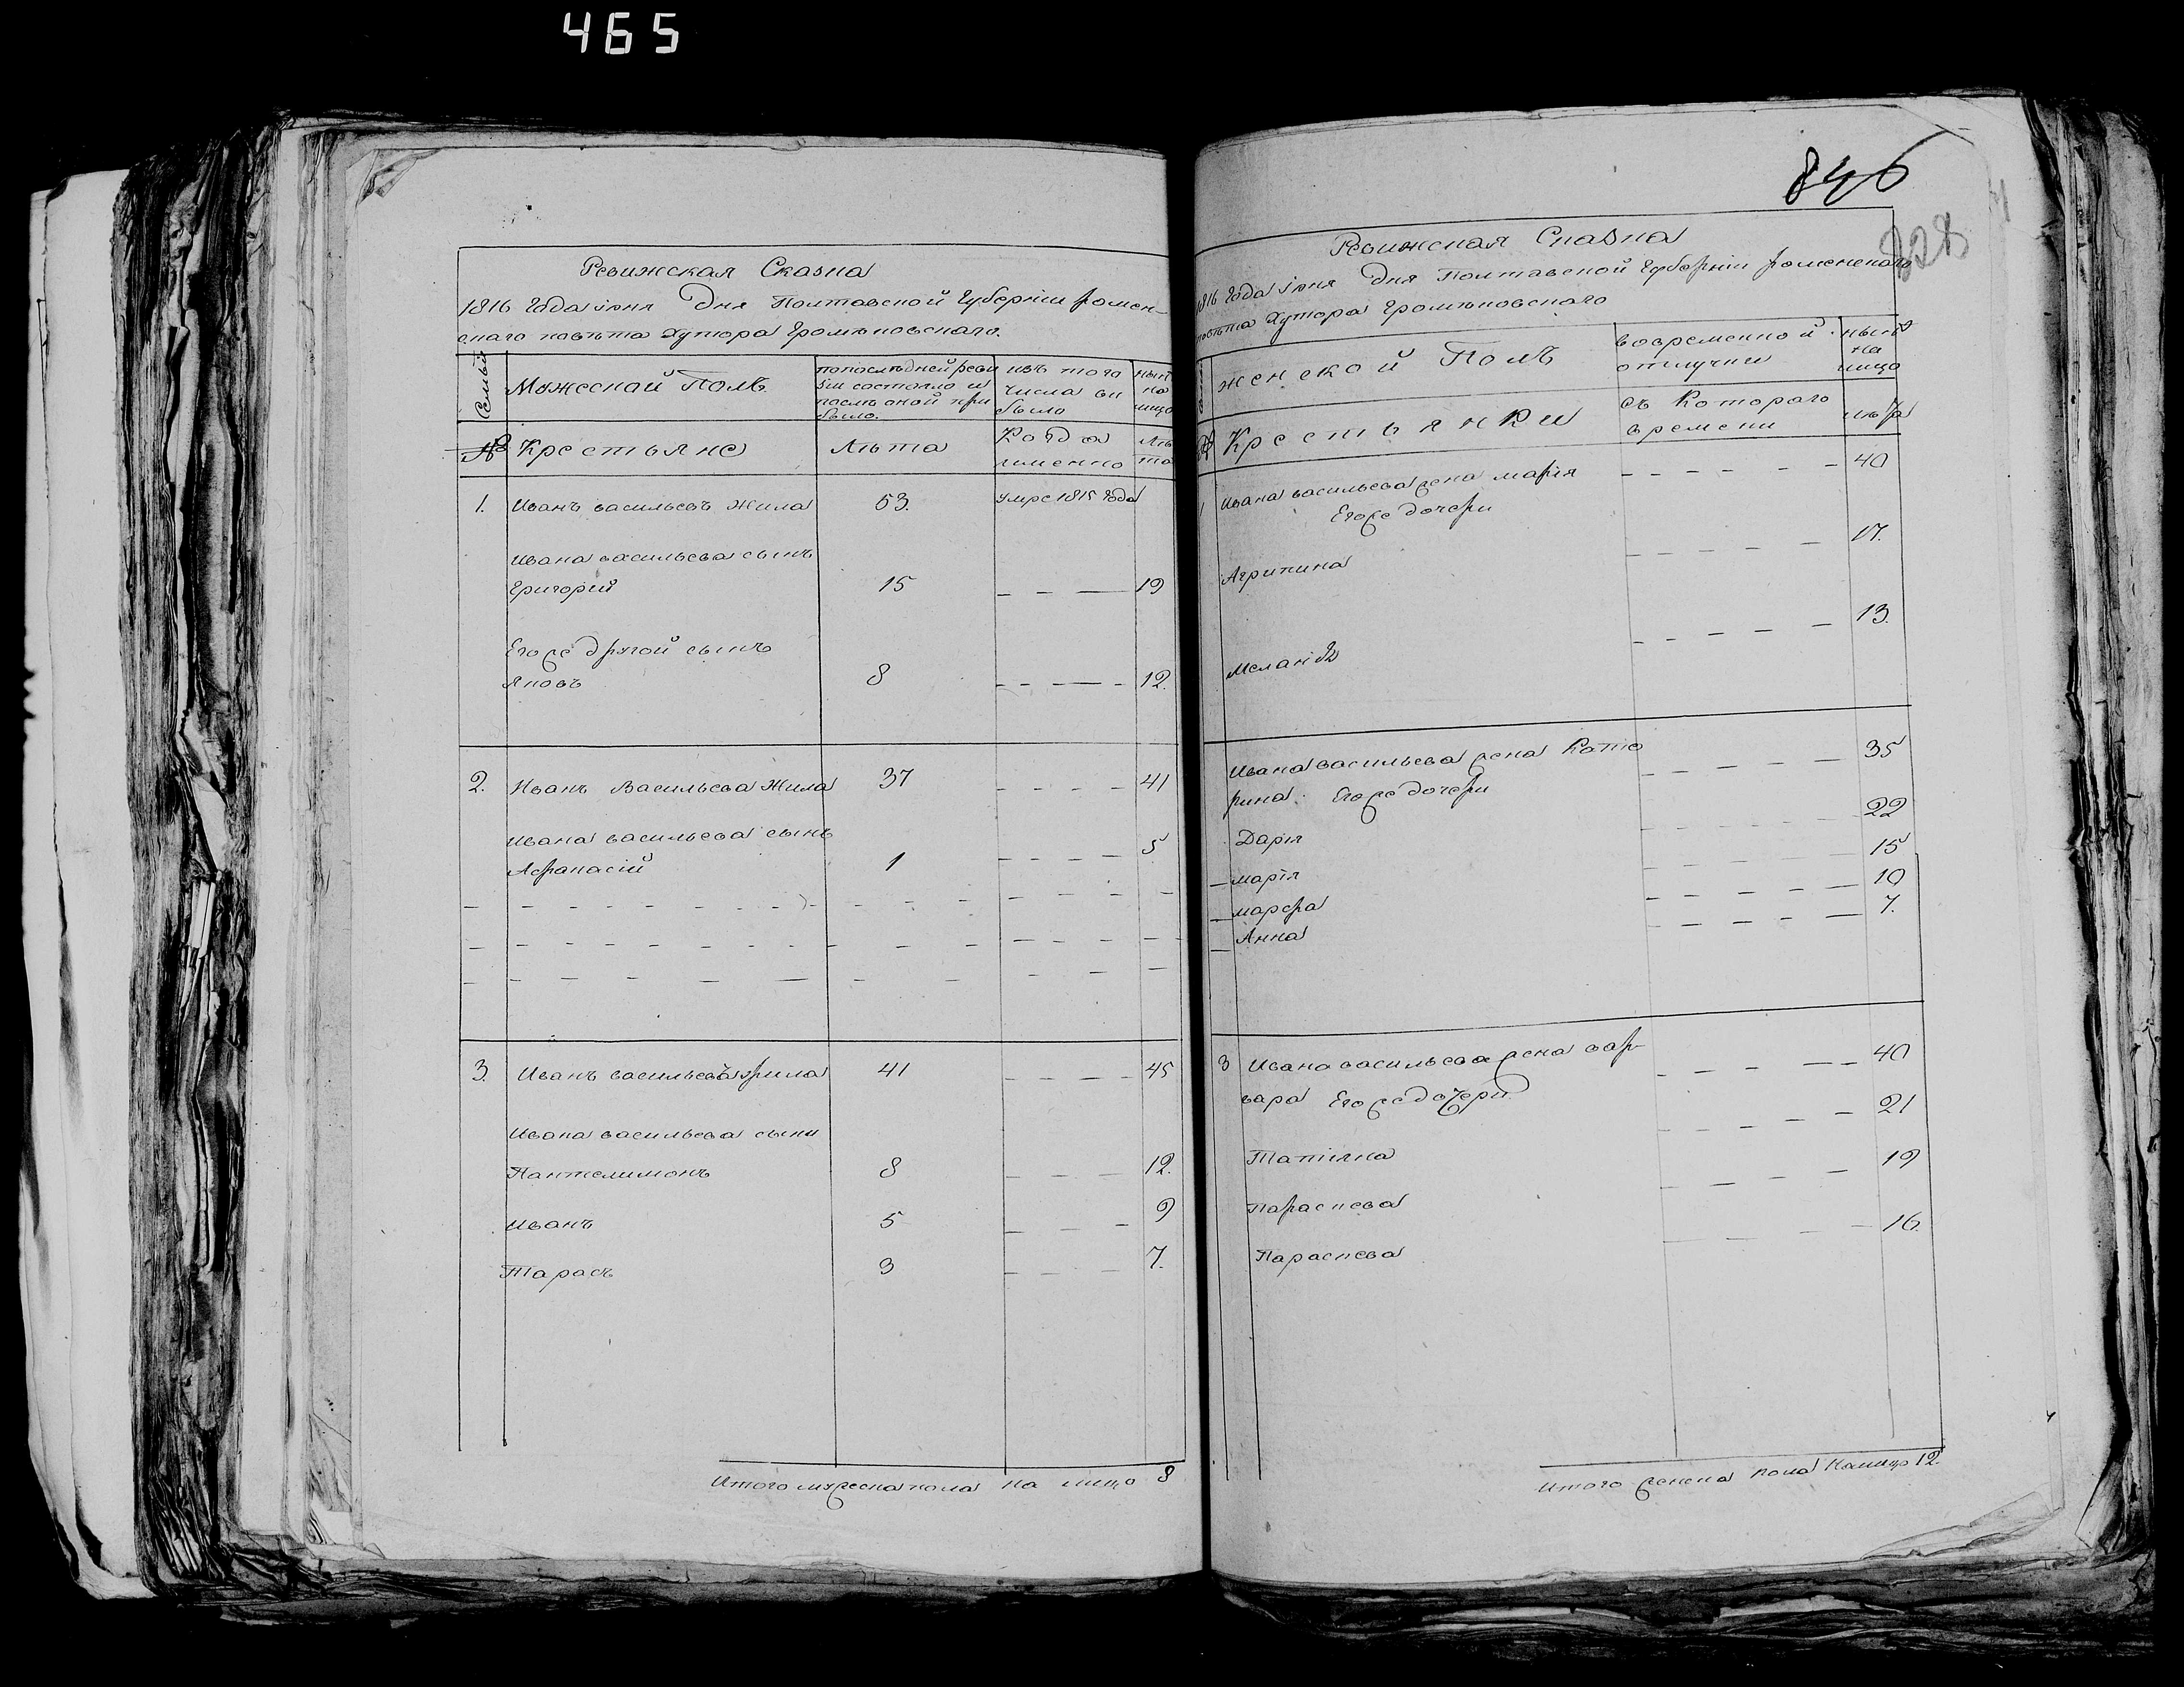 465
Ревижская Сказка
1816 года іюня дня Полтавской губерніи ромен-
скаго повѣта хутора Громѣковскаго.
Семьи
Мужескай Полъ
попослѣдней реви
зіи состояло и
послѣ оной при
было.
изъ того
числа вы
было
нын
на
лицо
№
Крестьяне
Лѣта
Когда
именно
лѣ
та
1. Иванъ васильевъ Жила 53. умре 1815 года
Ивана васильева сынъ
Григорий 15 19
Его же другой сынъ
Яковъ 8 12.
2. Иванъ Васильева Жила 37 41
Ивана васильева сынъ
Афанасій 1 5
3. Иванъ васильевъ жила 41 45
Ивана васильева сыни
Пантелимонъ 8 12.
Иванъ 5 9
Тарасъ 3 7.
Итого мужеска пола на лицо 8
846
228
Ревижская Сказка
1816 года іюня дня Полтавской губерніи роменскаго
повѣта хутора Громѣковскаго
женской Полъ
вовременной
отлучки
нынѣ
на
лицо
№
Крестьянки
съ Котораго
времени
1 Ивана васильева жена марія 40
Его же дочери
Агрипина 17.
Меланія 13.
Ивана васильева жена Кате 35
рина. Его же дочери
22
Дарія 15
марія 10
марфа 7.
Анна
3 Ивана васильева жена вар- 40
вара Его же дочери 21
Татіяна 19
Параскева 16.
Параскева
Итого женска пола Налицо 12.